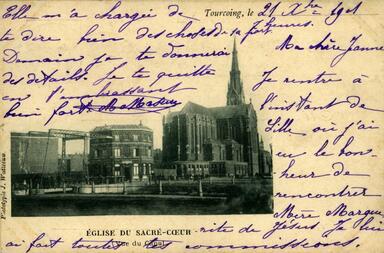 Elle m'a chargée de
te dire bien des choses de sa part
Demain je te donnerai
des détails. Je te quitte
en t'embrassant
bien fort
Tourcoing, le 21 Xbre 1901
7 heures.
Ma chère Jeanne
Je rentre à
l'instant de
Lille où j'ai
eu le bon-
heur de
rencontrer
Mère Marguerite
rite de Jésus. Je lui
ai fait toutes les commissions.
ÉGLISE DU SACRÉ-CŒUR
(Vue du Canal)
Phototypie J. Watteeuw